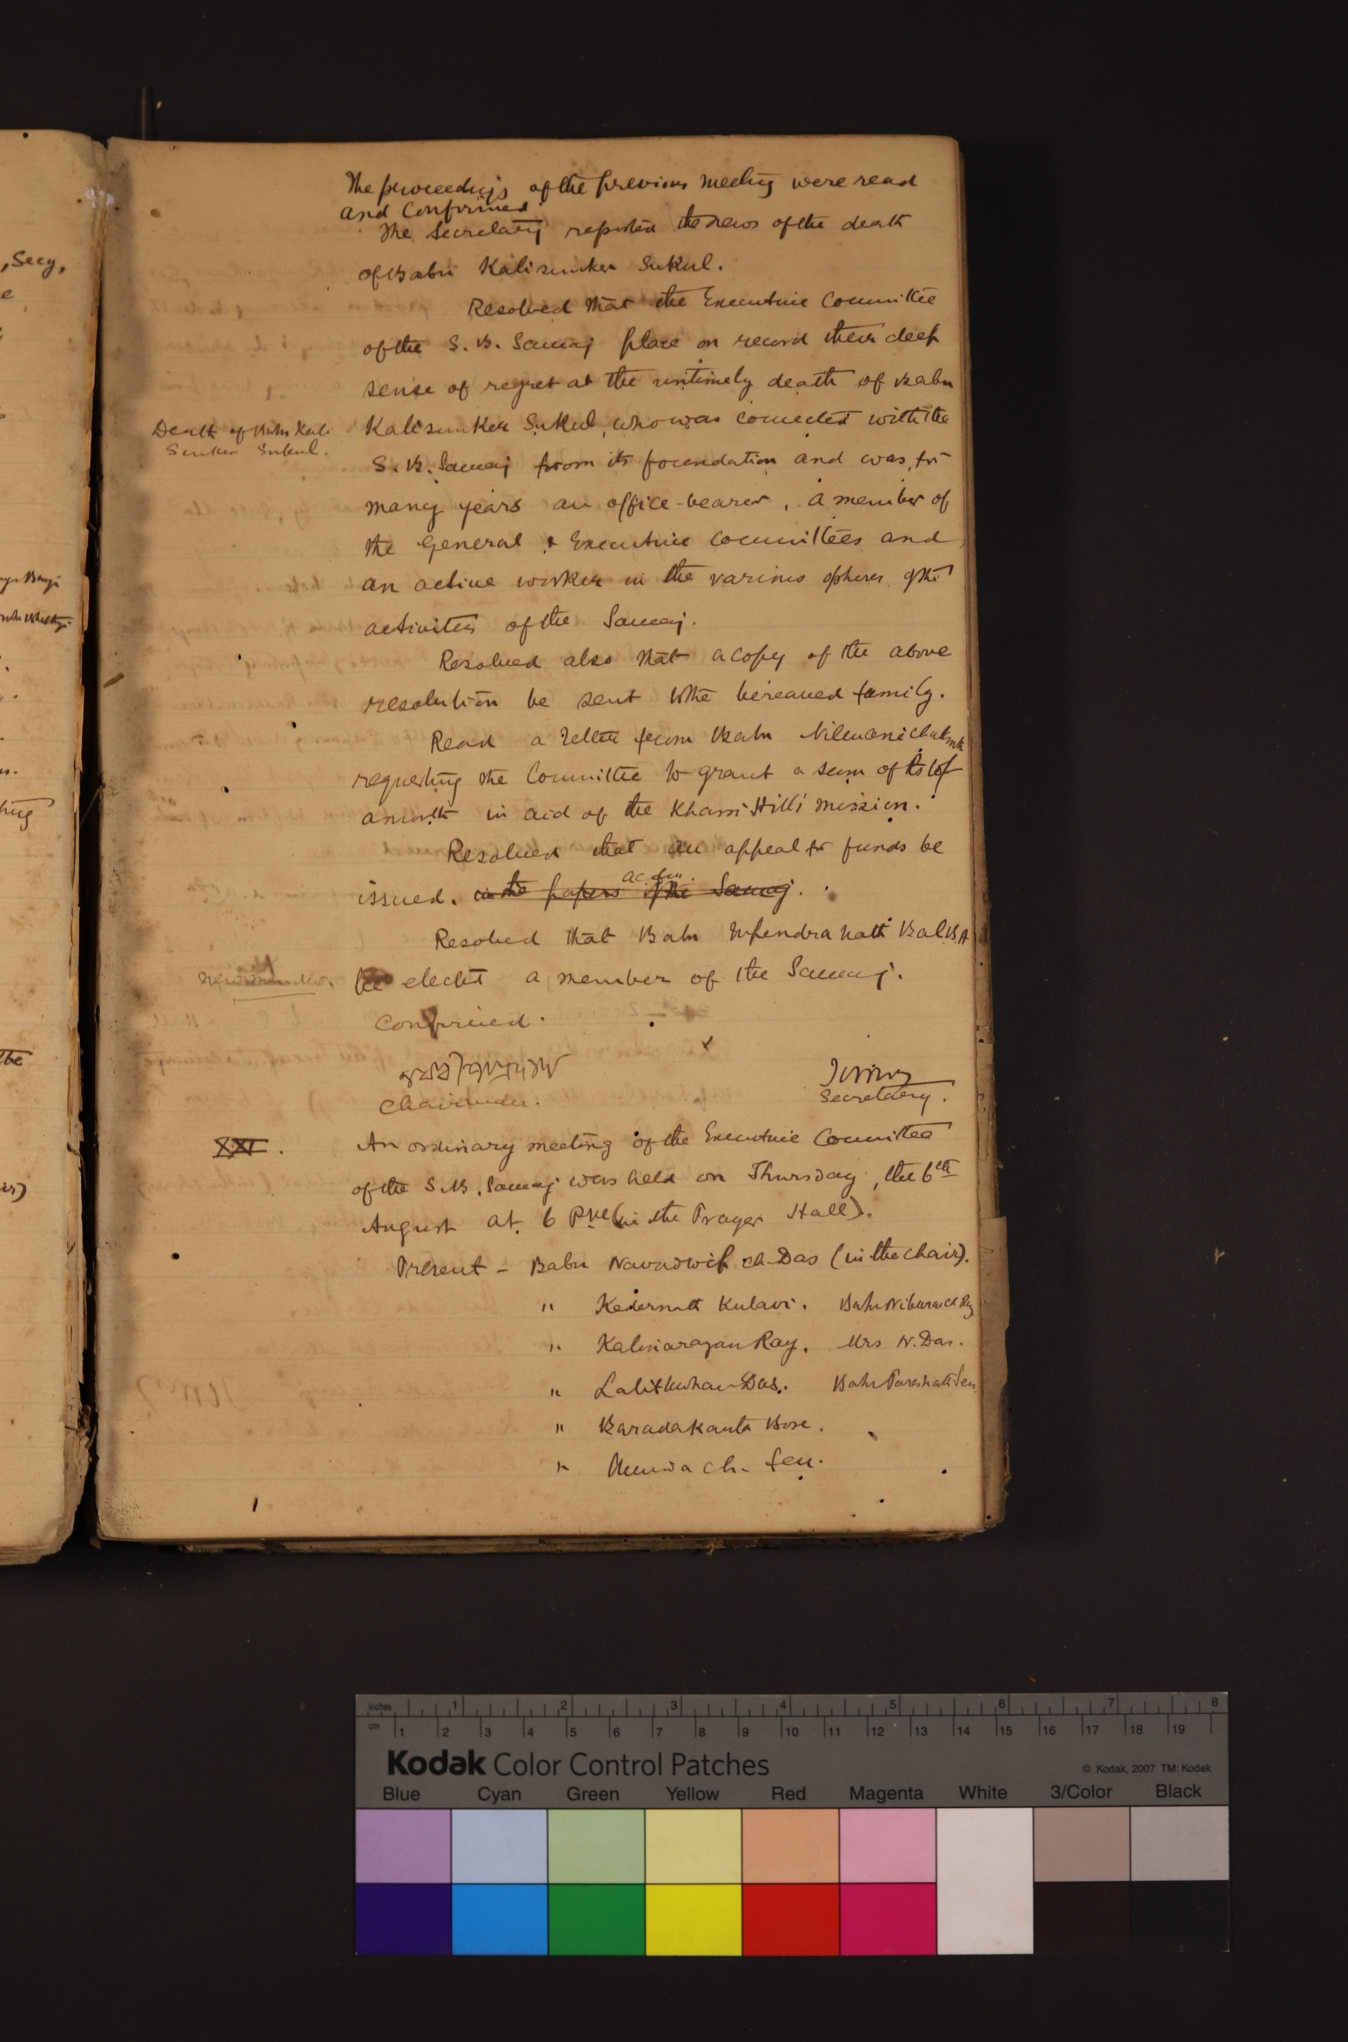 The proceedings of the previous meeting were read
and confirmed.
The Secretary reported the news of the death
of Babu Kalisunker Sukul.
Resolved that the Executive Committee
of the S. B. Samaj place on record their deep
sense of regret at the untimely death of Babu
Death of Babu Kali
Sunker Sukul.
Kalisunker Sukul, who was connected with the
S. B. Samaj from its foundation and was, for
many years an office-bearer, a member of
the General & Executive Committees and
an active worker in the various spheres of the
activities of the Samaj.
Resolved also that a copy of the above
resolution be sent to the bereaved family.
Read a letter from Babu Nilmani
requesting the Committee to grant a sum of Rs 10/-
a month in aid of the Khasi Hills mission.
Resolved that an appeal for funds be
issued. in the papers of the Samaj.
Resolved that Babu Upendra Nath Bal B.A
New member.
be elected a member of the Samaj.
Confirmed.
Chairman.
Secretary.
XXI.
An ordinary meeting of the Executive Committee
of the S. B. Samaj was held on Thursday, the 6th
August at 6 P.M. (in the Prayer Hall).
Present - Babu Navadwip ch. Das (in the chair).
" Kedernath Kulavi. Babu Nibaran ch Ray
" Kalinarayan Ray. Mrs N. Das.
" Lalitmohan Das. Babu Pareshnath Sen
" Baradakanta Bose.
" ch. Sen.
, Secy,
the
inches 1 2 3 4 5 6 7 8
cm 1 2 3 4 5 6 7 8 9 10 11 12 13 14 15 16 17 18 19
Kodak Color Control Patches
© Kodak, 2007 TM: Kodak
Blue Cyan Green Yellow Red Magenta White 3/Color Black